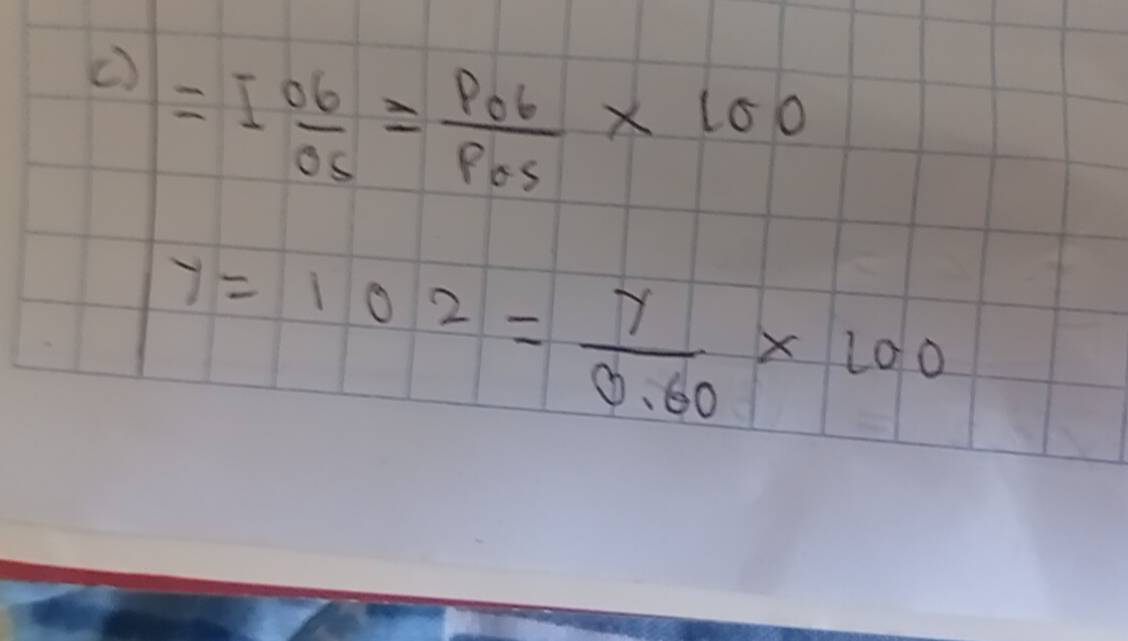 c) = I 06/05 = P06/P05 × 100
y = 102 = y/0.60 × 100